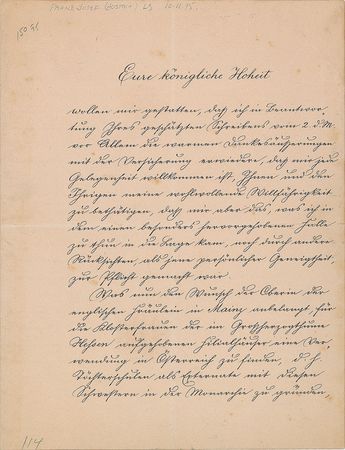 FRANZ JOSEF (AUSTRIA) LS 12.11.75.
150.95
Eure königliche Hoheit
wollen mir gestatten, daß ich in Beantwor-
tung Ihres geschätzten Schreibens vom 2. d. M
vor Allem die warmen Dankesäußerungen
mit der Versicherung erwiedere, daß mir jede
Gelegenheit willkommen ist, Ihnen und den
Ihrigen meine wohlwollende Willfährigkeit
zu bethätigen, daß mir aber das, was ich in
dem einen besonders hervorgehobenen Falle
zu thun in der Lage kam, noch durch andere
Rücksichten, als jene persönlicher Geneigtheit,
zur Pflicht gemacht war.
Was nun den Wunsch der Oberin der
englischen Fräulein in Mainz anbelangt, für
die Klosterfrauen der im Großherzogthume
Hessen aufgehobenen Filialhäuser eine Ver-
wendung in Österreich zu finden, d. h.
Töchterschulen als Externate mit diesen
Schwestern in der Monarchie zu gründen
114